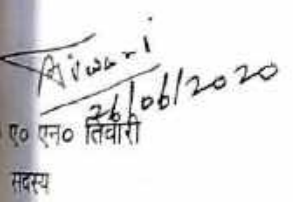 Tiwari
26/06/2020
ए० एन० तिवारी
सदस्य